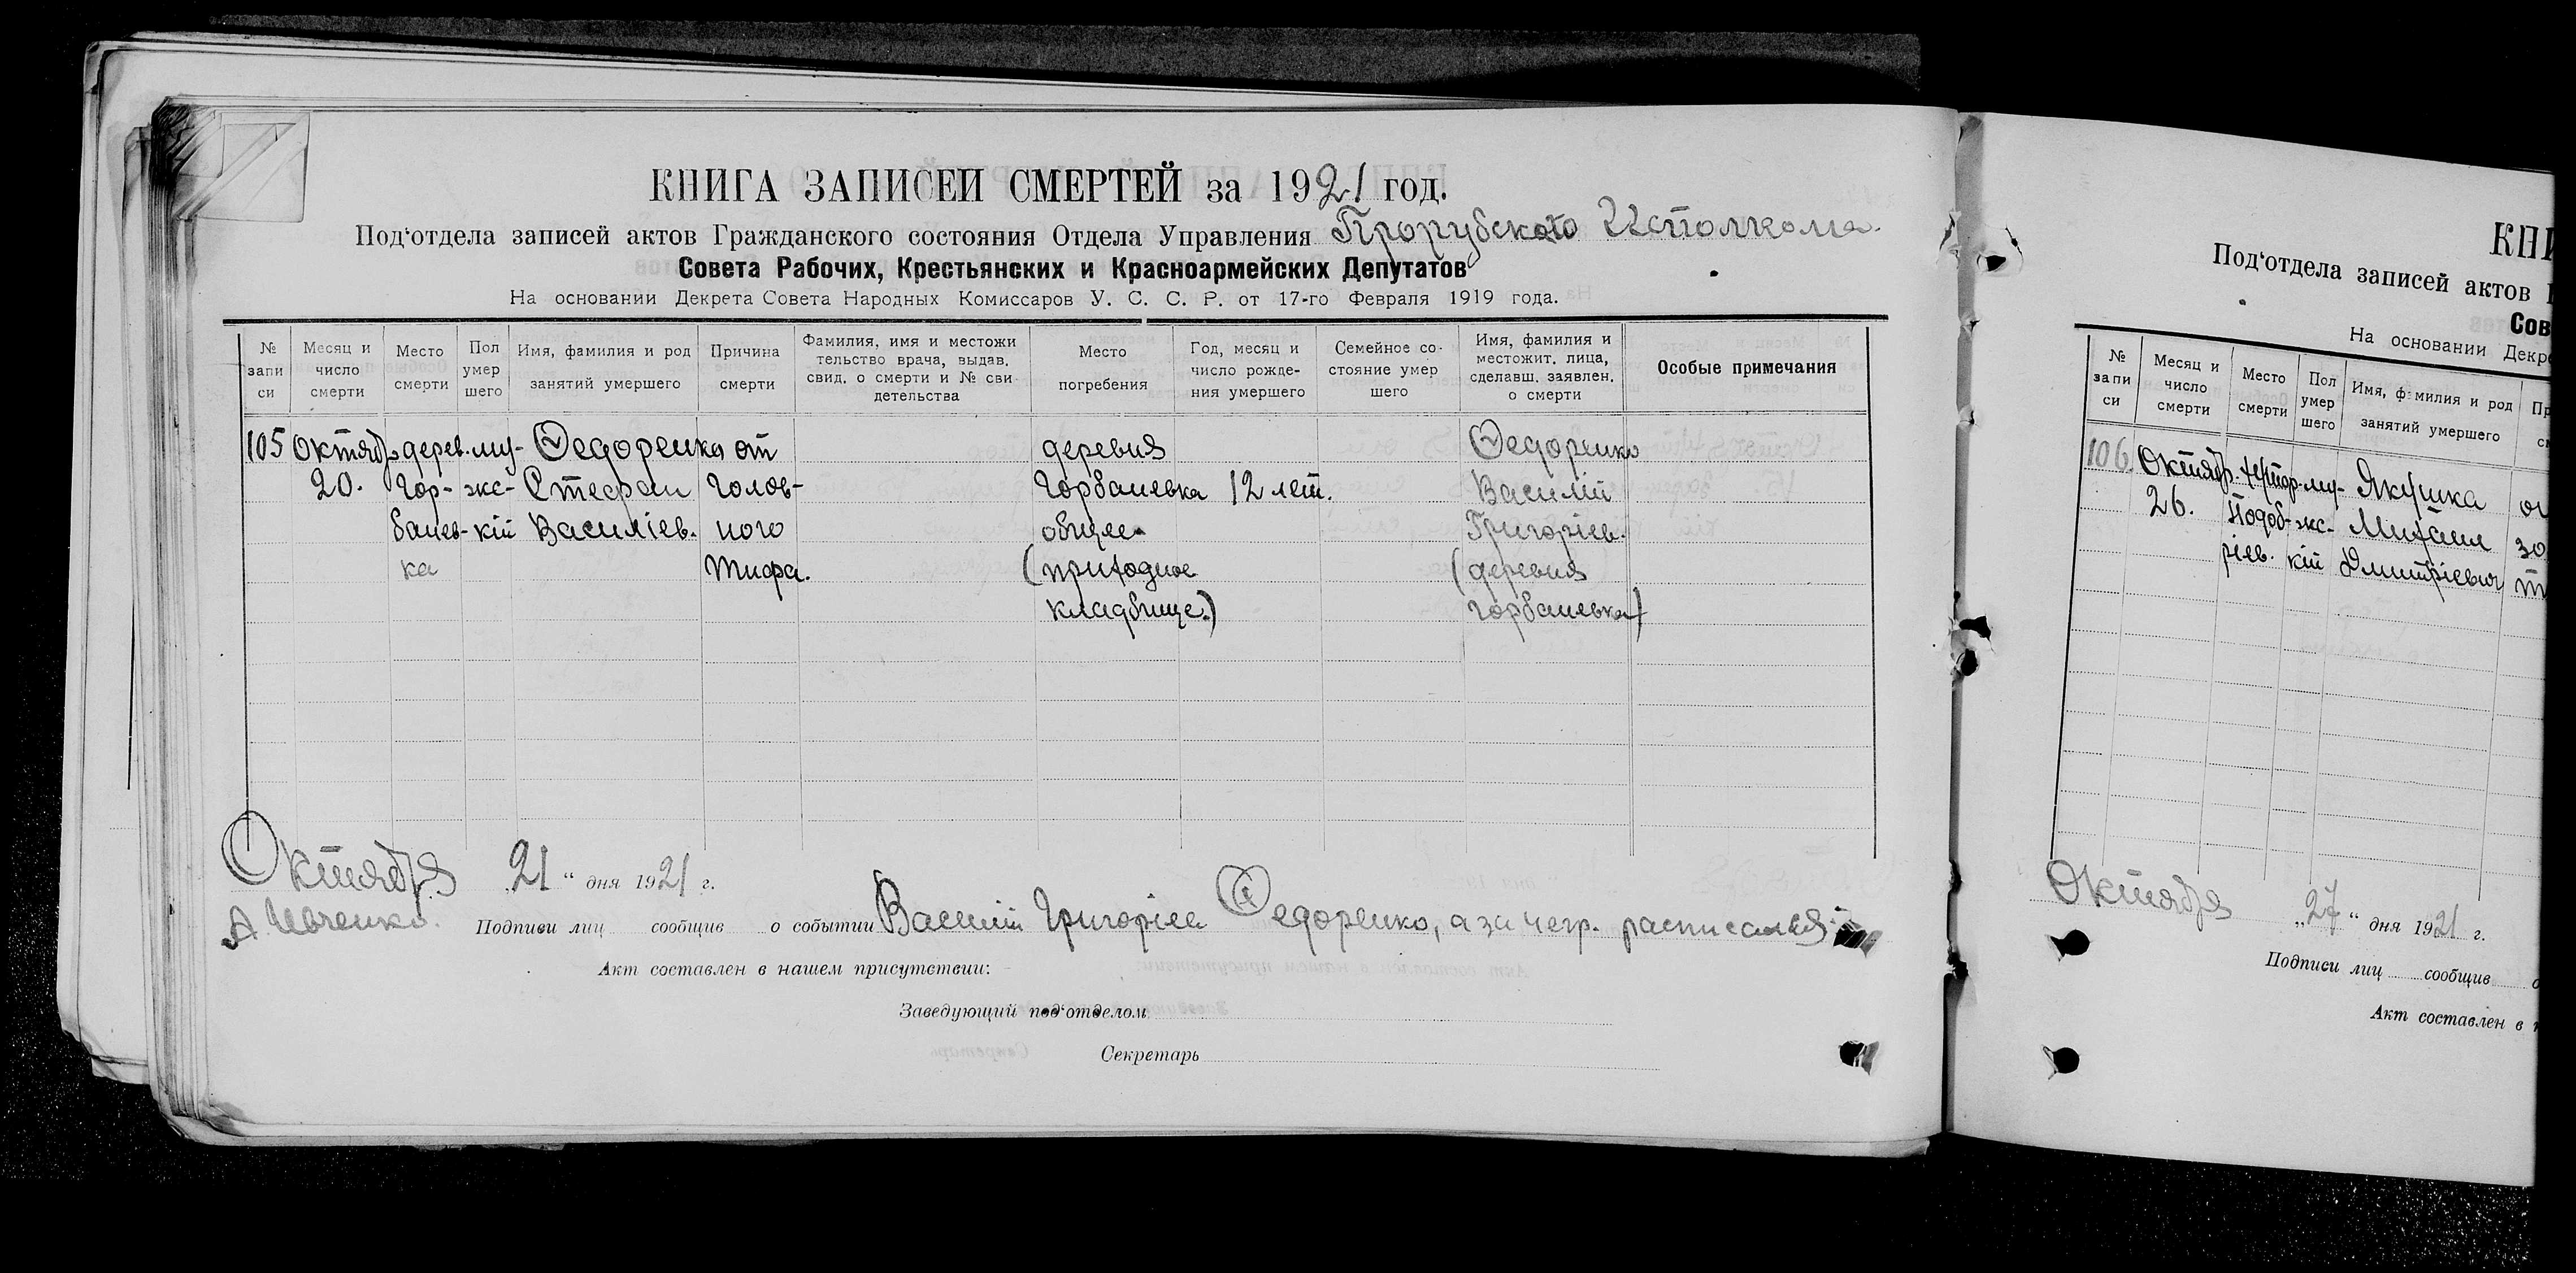 КНИГА ЗАПИСЕЙ СМЕРТЕЙ за 1921 год.
Под'отдела записей актов Гражданского состояния Отдела Управления Прорубского Исполкома
Совета Рабочих, Крестьянских и Красноармейских Депутатов
На основании Декрета Совета Народных Комиссаров У. С. С. Р. от 17-го Февраля 1919 года.
№ запи си
Месяц и число смерти
Место смерти
Пол умер шего
Имя, фамилия и род занятий умершего
Причина смерти
Фамилия, имя и местожи тельство врача, выдав. свид. о смерти и № сви детельства
Место погребения
Год, месяц и число рожде- ния умершего
Семейное со- стояние умер шего
Имя, фамилия и местожит. лица, сделавш. заявлен. о смерти
Особые примечания
105 Октябр. дерев. му- Федоренко от деревня Федоренко
20. Гор- экс- Стефан голов- Горбаневка 12 лет. Василій
банев- кій Василіев. ного общее Григоріев.
ка Тифа. (приходное (деревня
кладбище.) Горбаневка)
Октября 21 " дня 1921 г.
А. Ивченко. Подписи лиц сообщив о событии Василій Григоріев Федоренко, а за негр. расписался:
Акт составлен в нашем присутствии:
Заведующий под'отделом
Секретарь
КНИ
Под'отдела записей актов Г
Сов
На основании Декре
№ запи си
Месяц и число смерти
Место смерти
Пол умер шего
Имя, фамилия и род занятий умершего
106. Октябр. хутор. му- Якушка
26. Подоб- экс- Михаил
ріев. кій Дмитріевич
Октября
„27" дня 1921 г.
Подписи лиц сообщив о
Акт составлен в н